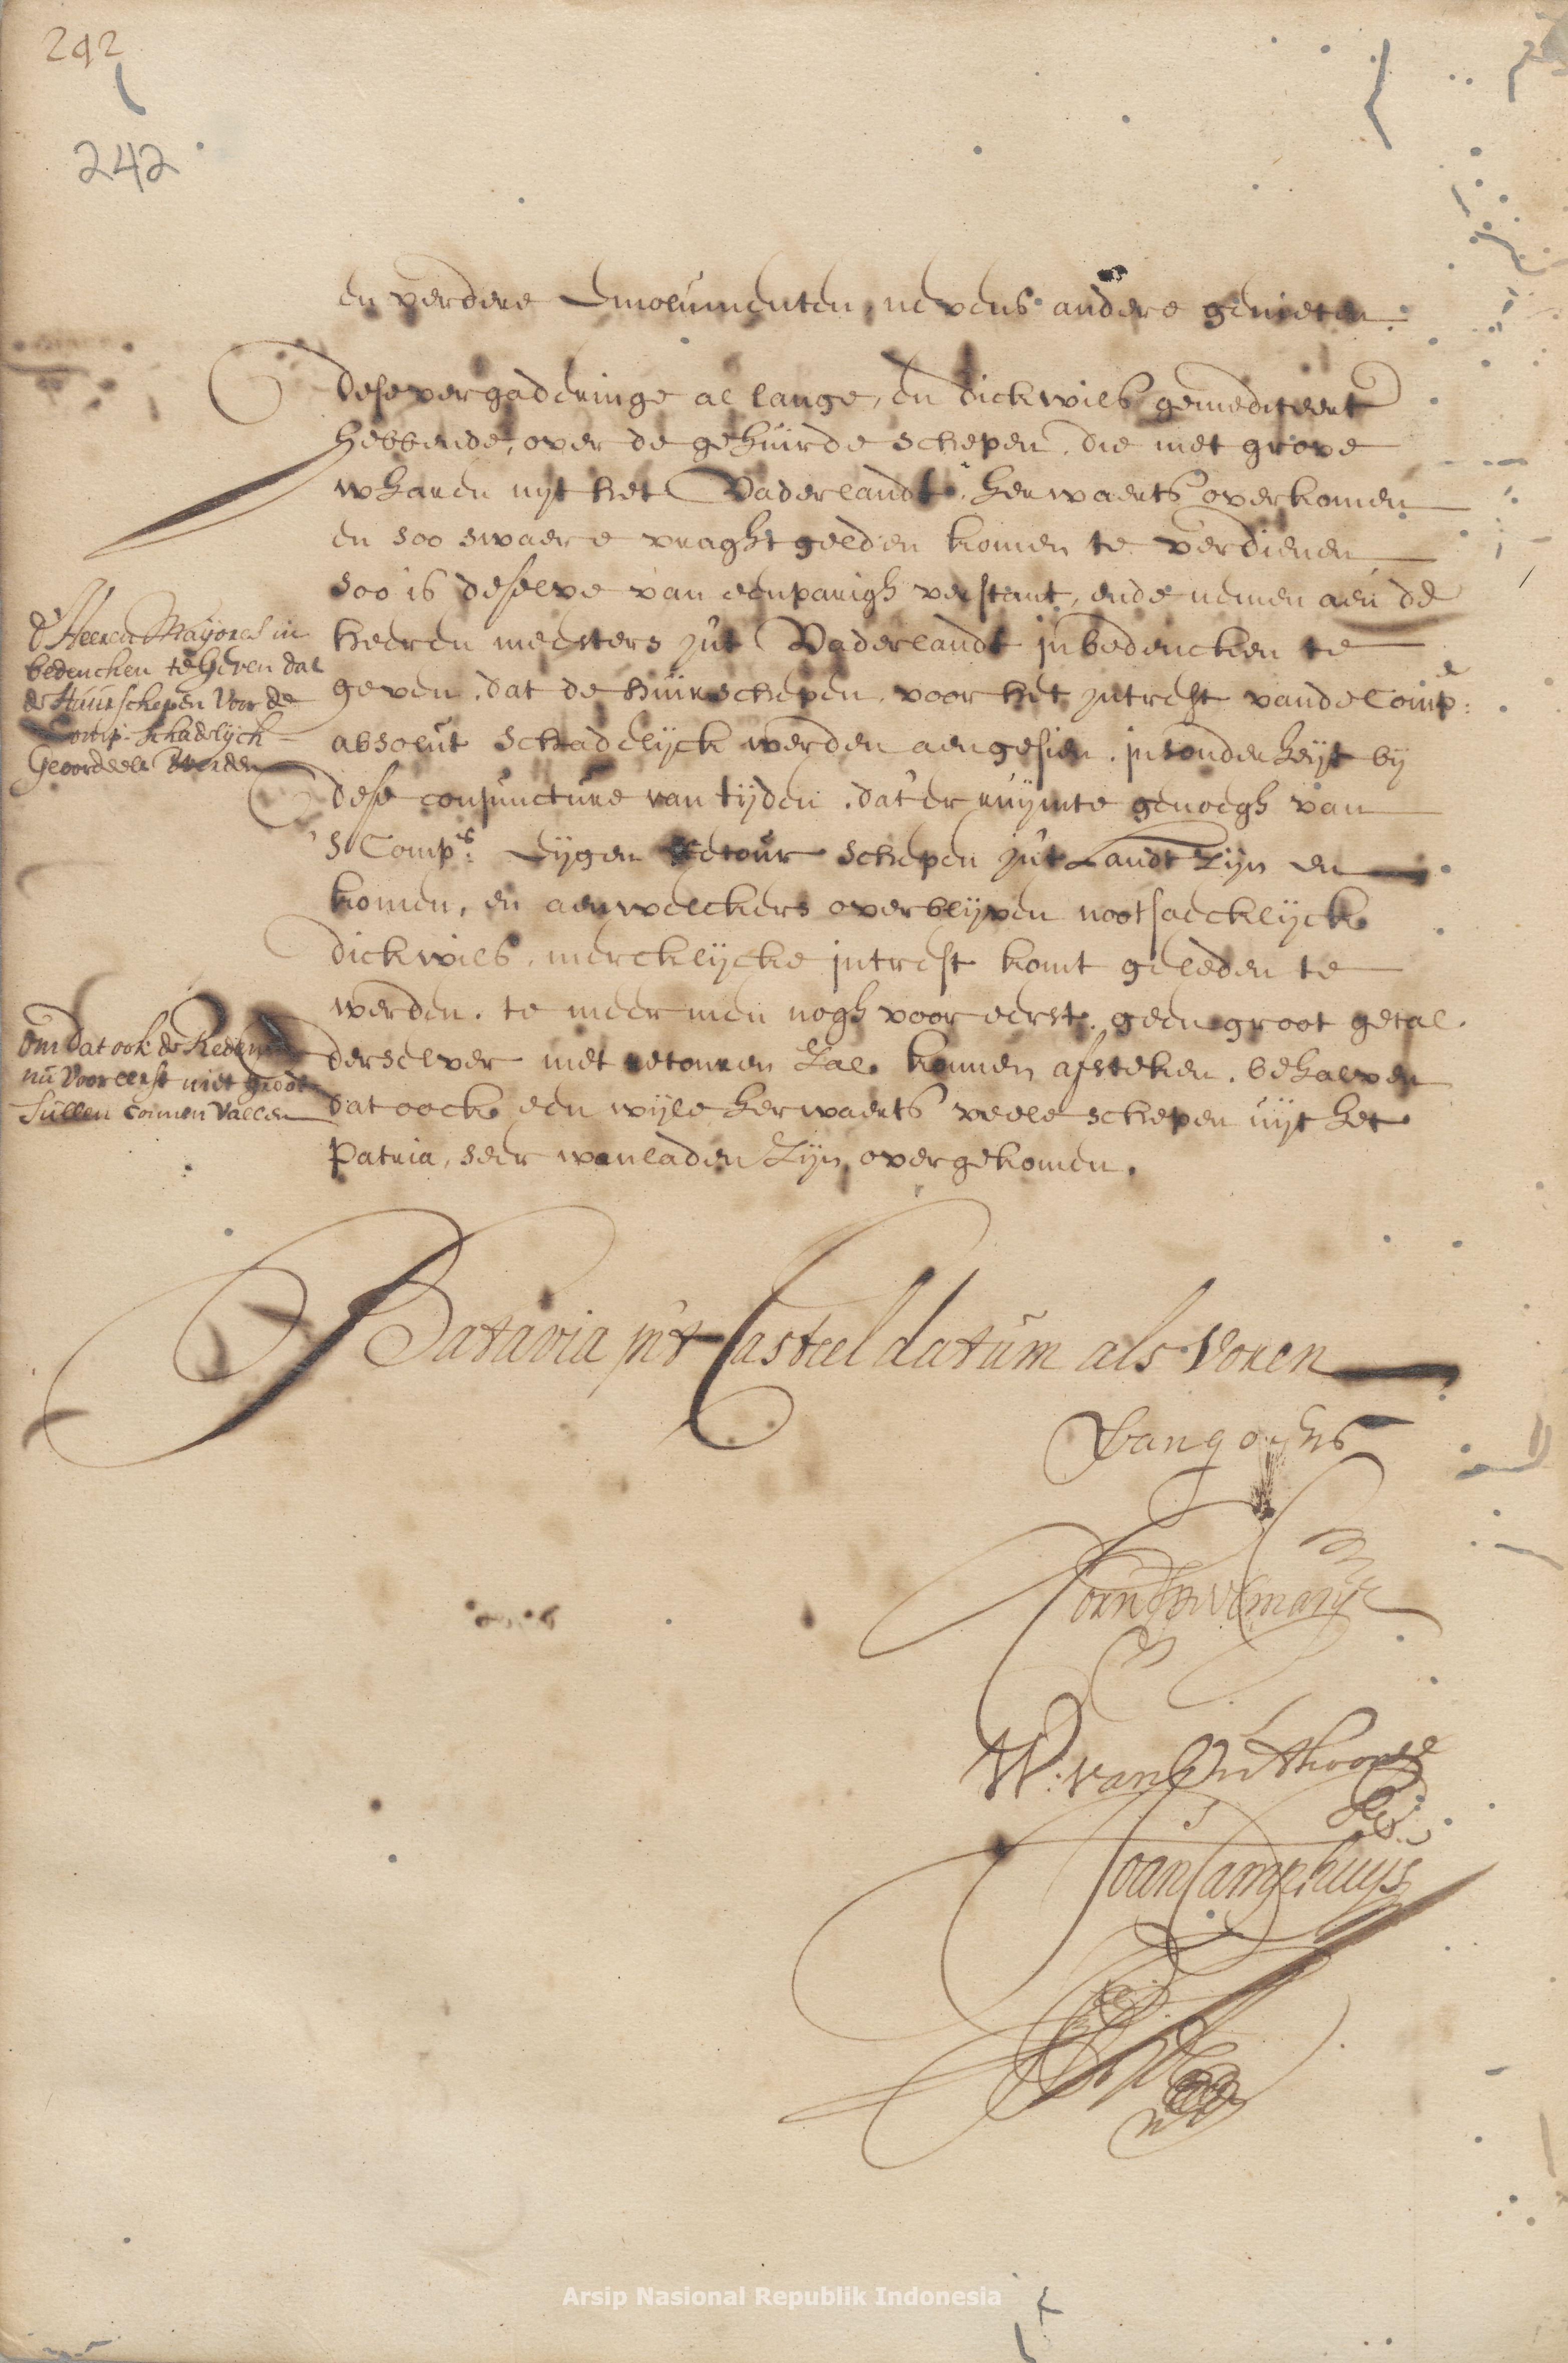 242
242
en verdere Emolumenten, nevens andere genieten.
Dese vergaderinge al lange, en dickwils gemediteert
hebbende, over de gehuirde schepen, die met grove
wharen uyt het Vaderlandt, herwaerts overkomen
en soo swaere vraght gelden komen te verdienen
soo is deselve van eenparigh verstant, ende nemen aen de
heeren meesters in't Vaderlandt in bedencken te
geven, dat de huirschepen, voor het intrest vande Compe:
absolut schadelijck werden aengesien, insonderheijt bij
dese conjuncture van tijden, dat'er ruijmte genoegh van
's Comps: Eijgen retour schepen in't Landt zijn en
komen, en aen welckers overblijven nootsaecklijck
dickwils, mercklijcke intrest komt geleden te
werden, te meer men nogh voor eerst, geen groot getal
derselver met retouren zal konnen afsteken, behalven
dat oock een wijle herwaerts veele schepen uijt het
Patria, seer wanladen zijn overgekomen.
d'Heeren Mayores in
bedencken te Geven dat
de Huurschepen voor de
Comp. schadelijck
Geoordeelt werden
om dat ook de
nu voor eerst niet groot
sullen comen vallen
Batavia in't Casteel datum als voren
Van goens
Corn Speelman
W: van Outhoorn
Joan Camphuijs
Arsip Nasional Republik Indonesia